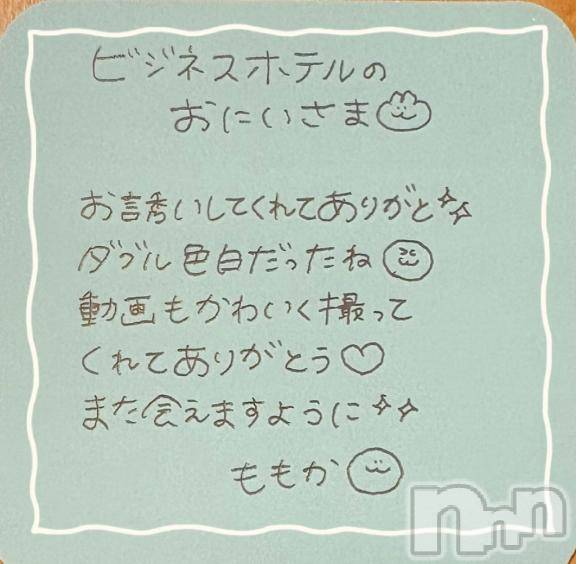 ビジネスホテルの
おにいさま
お誘いしてくれてありがと
ダブル色白だったね
動画もかわいく撮って
くれてありがとう♡
また会えますように
ももか
nnn